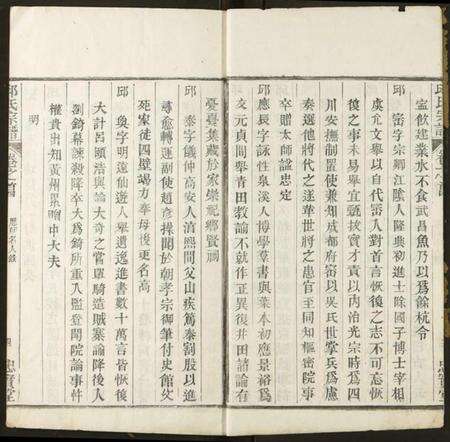 邱氏宗譜
卷之首
寧飲建業水不食武昌魚乃以爲餘杭令
邱 崈字宗卿江陰人隆興初進士除國子博士宰相
虞允文舉以自代崈入對首言恢復之志不可忘恢
復之事未易舉宜甄拔實才責以內治光宗時爲四
川安撫制置使兼知成都府崈以吳氏世掌兵爲慮
奏選他將代之遂革世將之患官至同知樞密院事
卒贈太師諡忠定
邱 應辰字詠性泉溪人博學羣書與葉本初應景裕爲
文元貞間舉青田教諭不就作正異後井田諸論有
憂憂集藏於家崇祀鄉賢祠
邱 泰字儀仲高安人清熙間父山疾篤泰割股以進
尋愈轉運副使趙彥操聞於朝孝宗御筆付史館攵
死家徒四壁竭力奉母後更名高
邱 奐字明遠仙遊人舉選逸進書數十萬言皆恢復
大計呂頤浩與論大奇之嘗單騎造賊寨諭降後入
劉錡幕諫殺降卒大爲錡所重入監登聞院論事忤
權貴出知黃州累贈中大夫
明
邱氏宗譜
卷之首
歷代名人錄
四
忠實堂